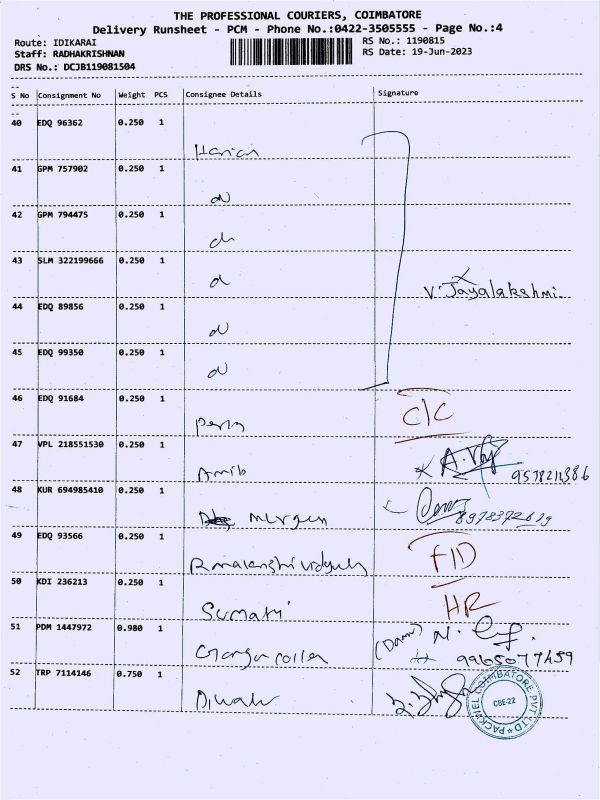 THE PROFESSIONAL COURIERS, COIMBATORE
Delivery Runsheet - PCM - Phone No.:0422-3505555 - Page No.:4
Route: IDIKARAI
RS No.: 1190815
Staff: RADHAKRISHNAN
RS Date: 19-Jun-2023
DRS No.: DCJB119081504
S No Consignment No Weight PCS Consignee Details Signature
40 EDQ 96362 0.250 1
41 GPM 757902 0.250 1
42 GPM 794475 0.250 1
43 SLM 322199666 0.250 1
V. Jayalakshmi
44 EDQ 89856 0.250 1
45 EDQ 99350 0.250 1
46 EDQ 91684 0.250 1
C/C
47 VPL 218551530 0.250 1
Amib
48 KUR 694985410 0.250 1
49 EDQ 93566 0.250 1
F/D
50 KDI 236213 0.250 1
Sumathi HR
51 PDM 1447972 0.980 1
Ganga
52 TRP 7114146 0.750 1
Diwakr
COIMBATORE
CBE-22